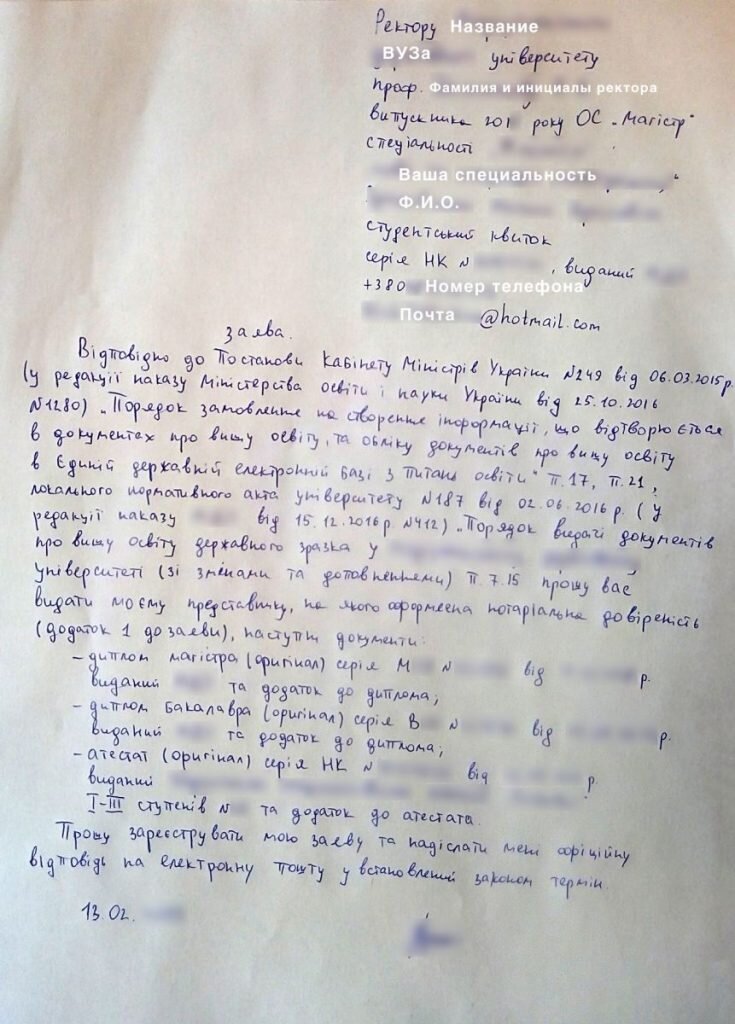 Ректору Название
ВУЗа університету
проф. Фамилия и инициалы ректора
випускника 201 року ОС „Магістр"
спеціальності
Ваша специальность "
Ф.И.О.
студентський квиток
серія НК N , виданий
+380 Номер телефона
Почта @hotmail.com
заява.
Відповідно до Постанови Кабінету Міністрів України N249 від 06.03.2015р.
(у редакції наказу Міністерства освіти і науки України від 25.10.2016
N1280) „Порядок замовлення на створення інформації, що відтворюється
в документах про вищу освіту, та обліку документів про вищу освіту
в Єдиній державній електронній базі з питань освіти" п.17, п.21,
локального нормативного акта університету N187 від 02.06.2016р. (у
редакції наказу від 15.12.2016р. N412) „Порядок видачі документів
про вищу освіту державного зразка у
університеті (зі змінами та доповненнями) п.7.15 прошу вас
видати моєму представнику, на якого оформлена нотаріальна довіреність
(додаток 1 до заяви), наступні документи:
- диплом магістра (оригінал) серія М N від р.
виданий та додаток до диплома;
- диплом бакалавра (оригінал) серія В N від р.
виданий та додаток до диплома;
- атестат (оригінал) серія НК N від р.
виданий
I-III ступенів N та додаток до атестата.
Прошу зареєструвати мою заяву та надіслати мені офіційну
відповідь на електронну пошту у встановлений законом термін.
13.02.